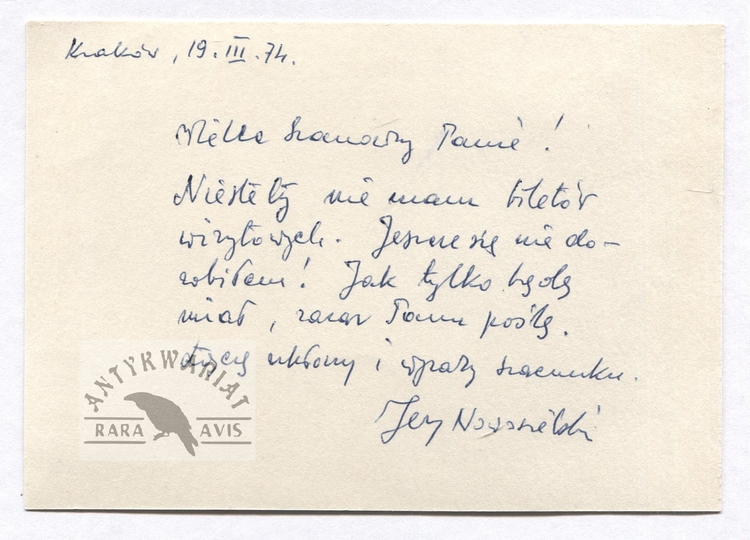 Kraków, 19.III.74.
Wielce Szanowny Panie!
Niestety nie mam biletów
wizytowych. Jeszcze się nie do-
robiłem! Jak tylko będę
miał, zaraz Panu poślę.
Łączę ukłony i wyrazy szacunku.
Jerzy Nowosielski
ANTYKWARIAT
RARA AVIS